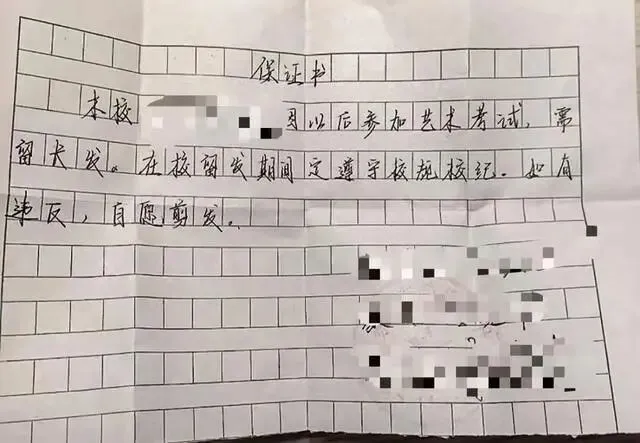 保证书
本校因以后参加艺术考试，需
留长发。在校留发期间定遵守校规校记。如有
违反，自愿剪发。